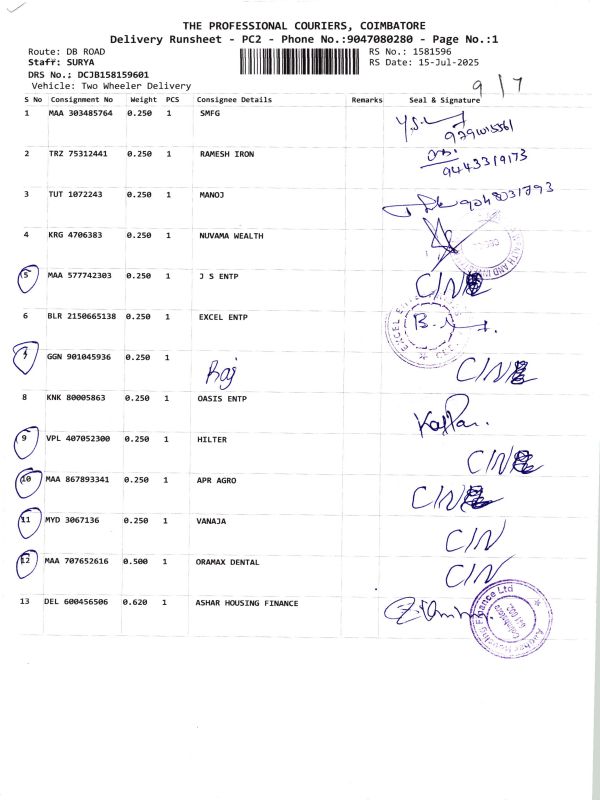 THE PROFESSIONAL COURIERS, COIMBATORE
Delivery Runsheet - PC2 - Phone No.:9047080280 - Page No.:1
Route: DB ROAD RS No.: 1581596
Staff: SURYA RS Date: 15-Jul-2025
DRS No.; DCJB158159601 9/7
Vehicle: Two Wheeler Delivery
S No Consignment No Weight PCS Consignee Details Remarks Seal & Signature
1 MAA 303485764 0.250 1 SMFG
2 TRZ 75312441 0.250 1 RAMESH IRON 9443319173
3 TUT 1072243 0.250 1 MANOJ
4 KRG 4706383 0.250 1 NUVAMA WEALTH
5 MAA 577742303 0.250 1 J S ENTP CIN
6 BLR 2150665138 0.250 1 EXCEL ENTP
7 GGN 901045936 0.250 1 Raj CIN
8 KNK 80005863 0.250 1 OASIS ENTP
9 VPL 407052300 0.250 1 HILTER CIN
10 MAA 867893341 0.250 1 APR AGRO CIN
11 MYD 3067136 0.250 1 VANAJA CIN
12 MAA 707652616 0.500 1 ORAMAX DENTAL CIN
13 DEL 600456506 0.620 1 ASHAR HOUSING FINANCE